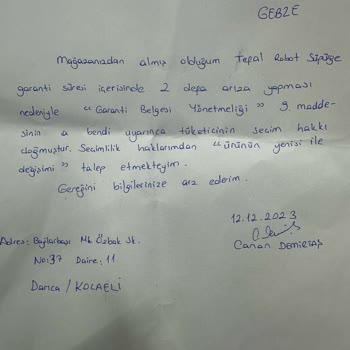 GEBZE
Mağazanızdan almış olduğum Tefal Robot Süpürge
garanti süresi içerisinde 2 defa arıza yapması
nedeniyle "Garanti Belgesi Yönetmeliği" 9. madde-
sinin a bendi uyarınca tüketicinin seçim hakkı
doğmuştur. Seçimlilik haklarımdan "ürünün yenisi ile
değişimi" talep etmekteyim.
Gereğini bilgilerinize arz ederim.
12.12.2023
Canan DEMİRTAŞ
Adres: Bağlarbaşı Mh. Özbak Sk.
No:37 Daire:11
Darıca / KOCAELİ